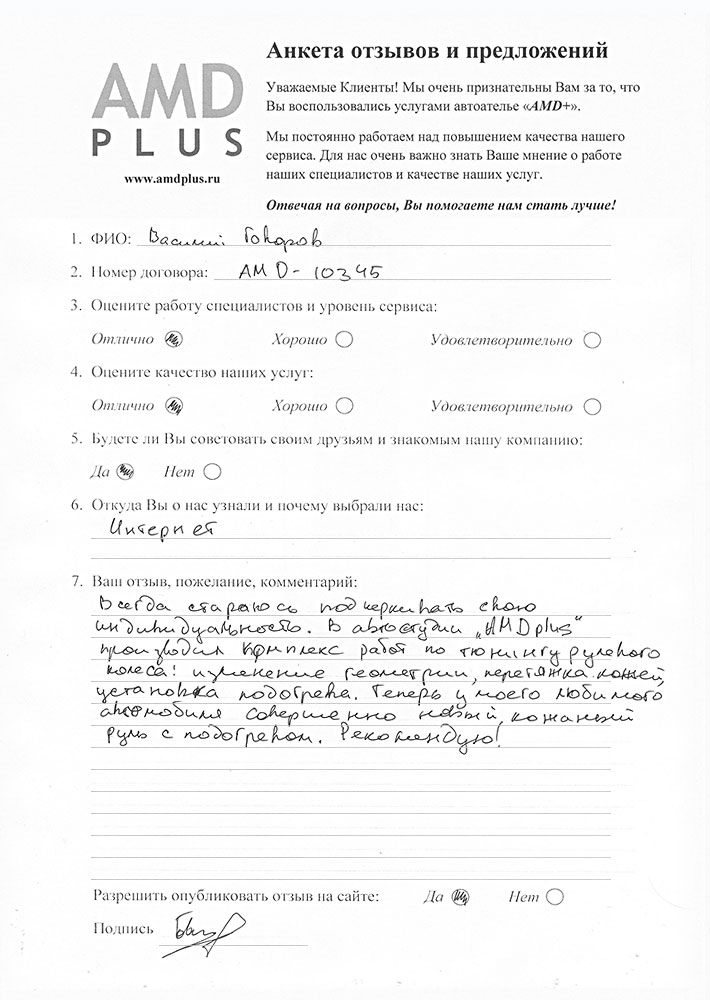 AMD
PLUS
www.amdplus.ru
Анкета отзывов и предложений
Уважаемые Клиенты! Мы очень признательны Вам за то, что
Вы воспользовались услугами автоателье «AMD+».
Мы постоянно работаем над повышением качества нашего
сервиса. Для нас очень важно знать Ваше мнение о работе
наших специалистов и качестве наших услуг.
Отвечая на вопросы, Вы помогаете нам стать лучше!
1. ФИО: Василий
2. Номер договора: AMD-10345
3. Оцените работу специалистов и уровень сервиса:
Отлично Хорошо Удовлетворительно
4. Оцените качество наших услуг:
Отлично Хорошо Удовлетворительно
5. Будете ли Вы советовать своим друзьям и знакомым нашу компанию:
Да Нет
6. Откуда Вы о нас узнали и почему выбрали нас:
Интернет
7. Ваш отзыв, пожелание, комментарий:
Всегда стараюсь подчеркивать свою
индивидуальность. В автостудии „AMDplus“
производил комплекс работ по тюнингу рулевого
колеса: изменение геометрии, перетяжка кожей,
установка подогрева. Теперь у моего любимого
автомобиля совершенно новый, кожаный
руль с подогревом. Рекомендую!
Разрешить опубликовать отзыв на сайте: Да Нет
Подпись